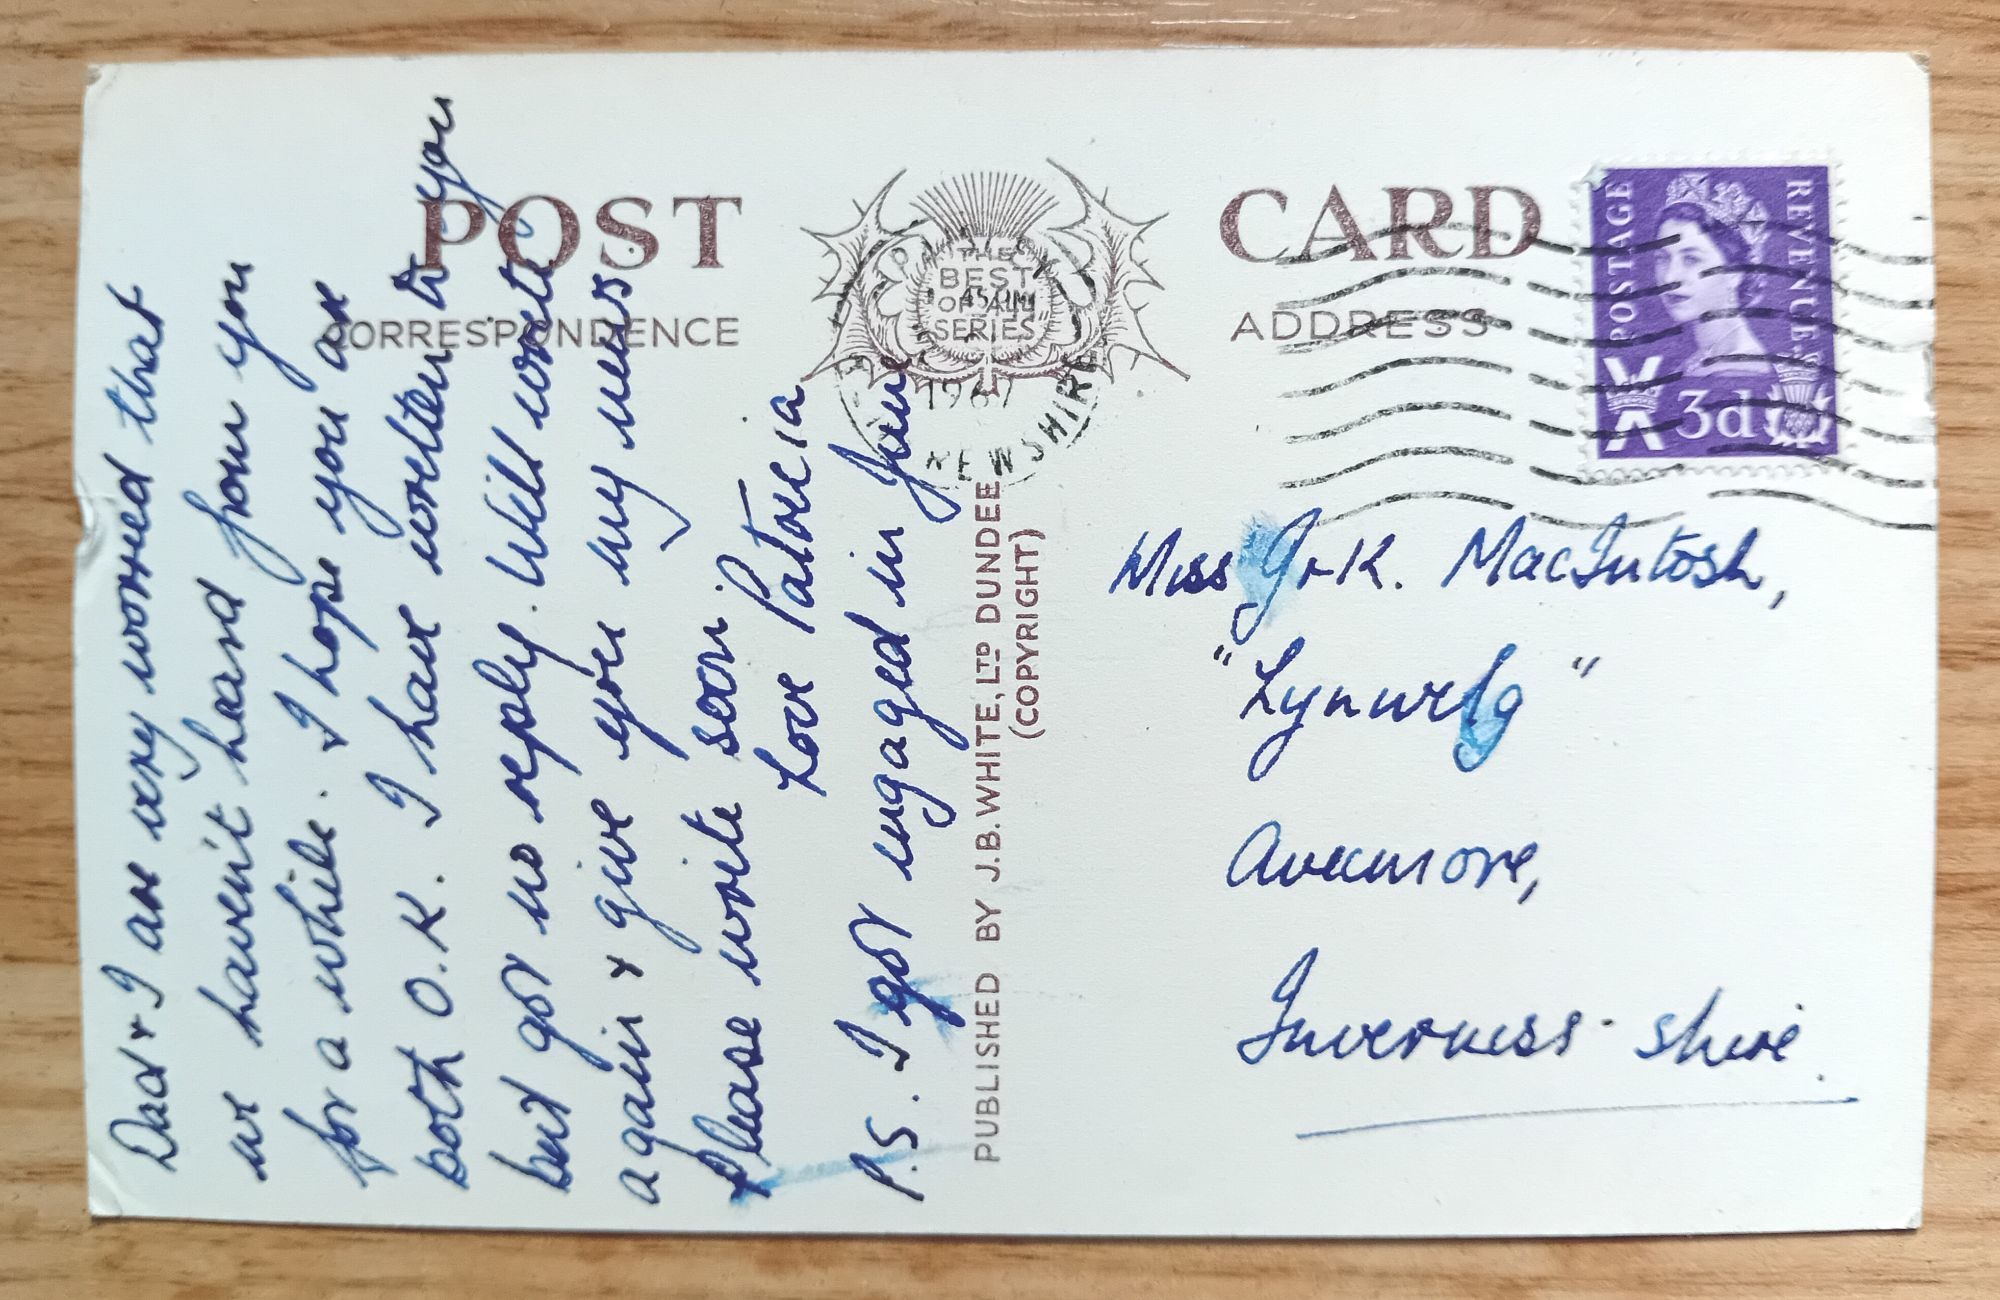 POST CARD
CORRESPONDENCE
ADDRESS
THE
BEST
OF ALL
SERIES
PAISLEY
45 PM
1967
RENFREWSHIRE
POSTAGE
REVENUE
3d
Dad & I are very worried that
we haven't heard from you
for a while. & I hope you are
both O.K. I have written to you
but got no reply. Will write
again & give you my news.
Please write soon
Love Patricia
P.S. I got engaged in June
PUBLISHED BY J.B. WHITE, LTD DUNDEE
(COPYRIGHT)
Miss K. MacIntosh,
"Lynwelg"
Aviemore,
Inverness-shire.